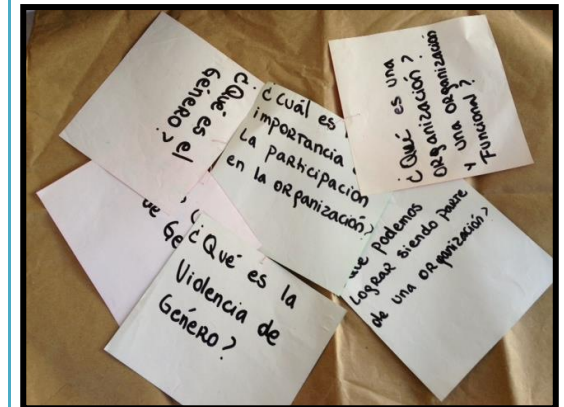 ¿Qué es el
GéneRo?
¿Cuál es
impoRtancia
La paRticipación
en la oRganización?
¿Qué es una
oRganización?
y una oRganización
Funcional?
de
Ge
¿Qué es la
Violencia de
GéneRo?
que podemos
LogRaR siendo paRte
de una oRganización?